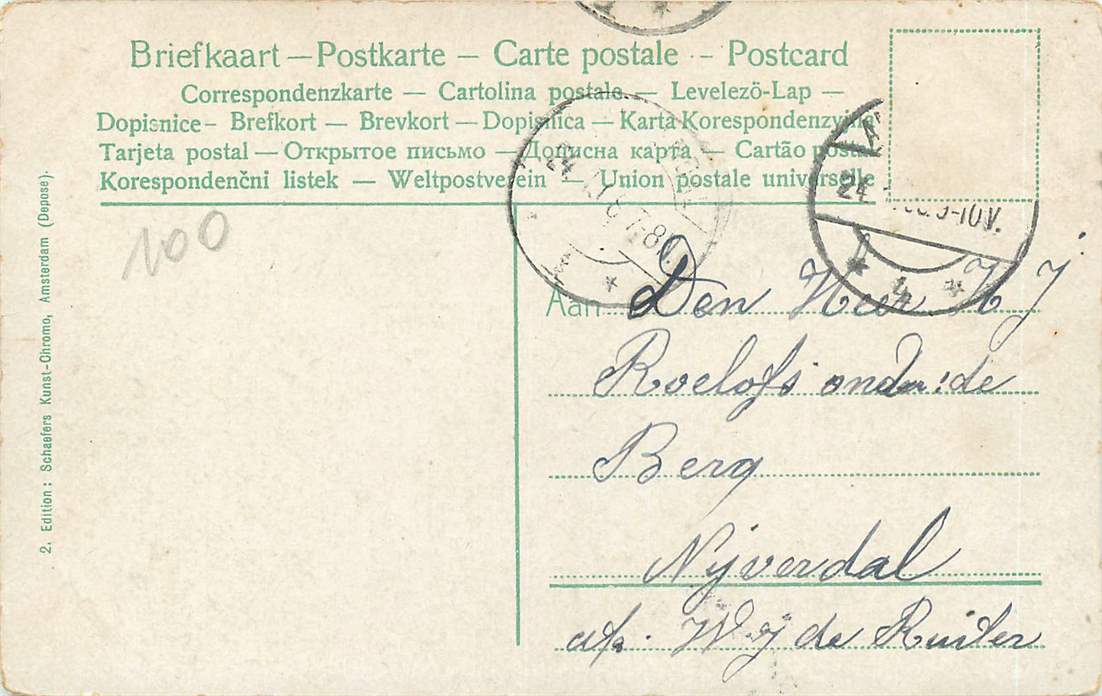 Briefkaart — Postkarte — Carte postale — Postcard
Correspondenzkarte — Cartolina postale — Levelezö-Lap —
Dopisnice — Brefkort — Brevkort — Dopisnica — Karta Korespondenzyjna
Tarjeta postal — Открытое письмо — Дописна карта — Cartão postal
Korespondenční listek — Weltpostverein — Union postale universelle
2. Edition: Schaefers Kunst-Chromo, Amsterdam (Depose).
100
24
7-8N.
24
9-10V.
4
Aan Den Heer H J
Roelofs onder de
Berg
Nijverdal
afz. W de Ruiter